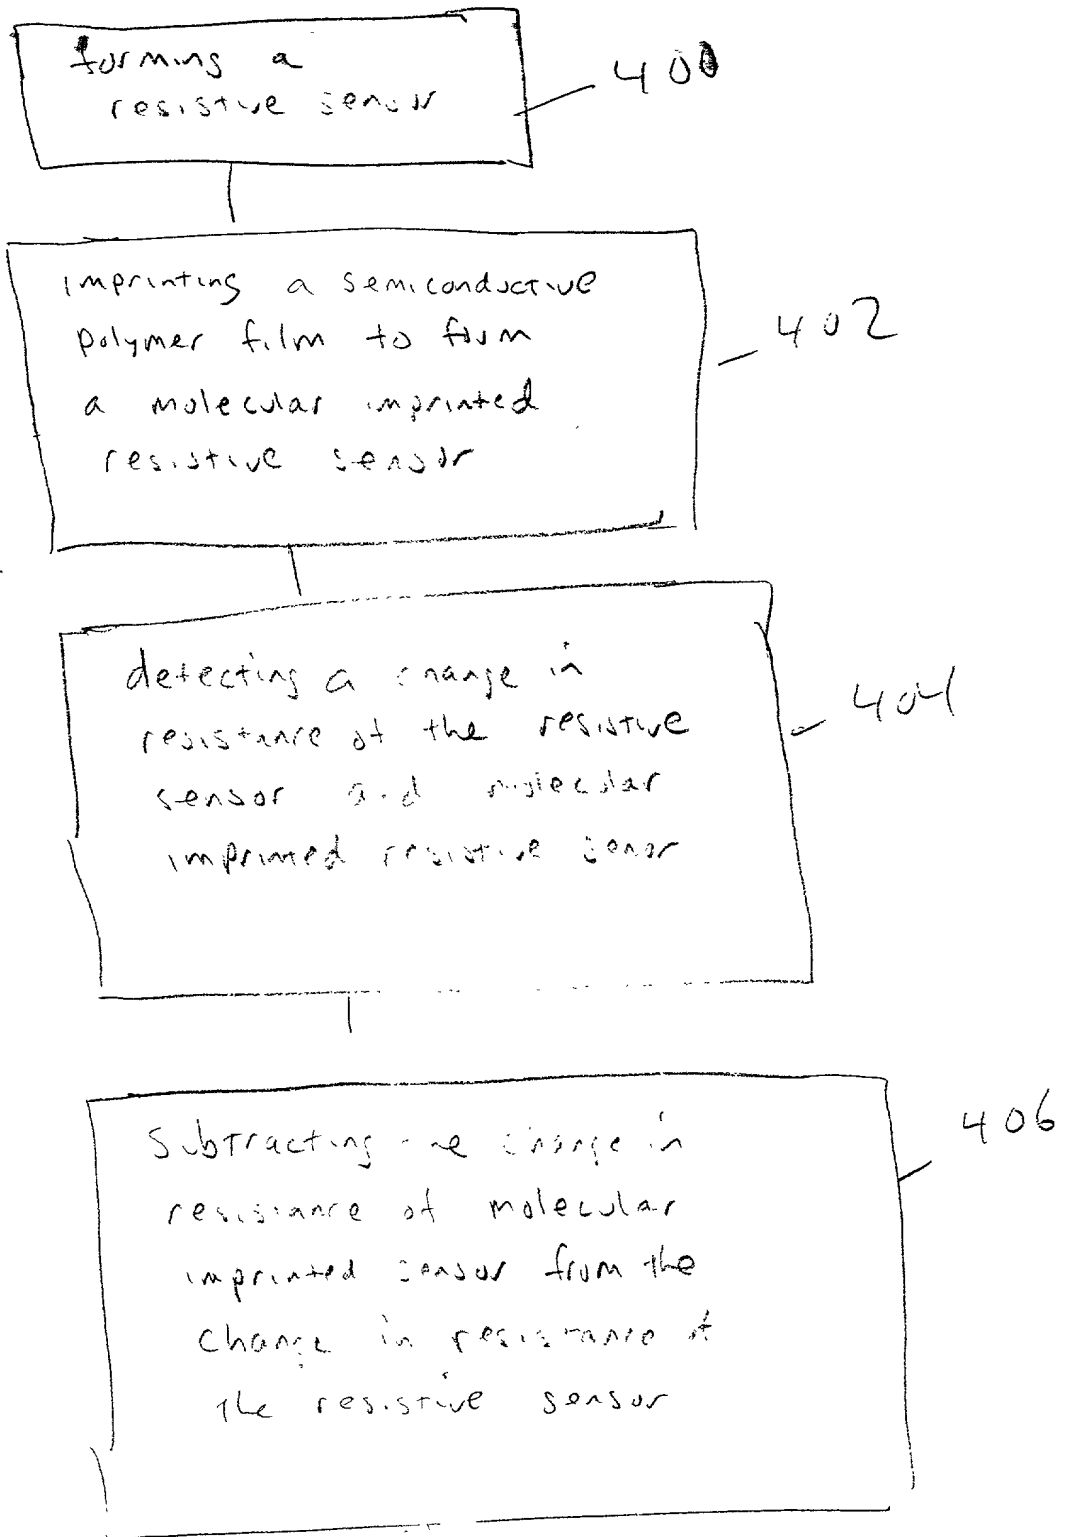 forming a
resistive sensor
400
imprinting a semiconductive
polymer film to form
a molecular imprinted
resistive sensor
402
detecting a change in
resistance of the resistive
sensor and molecular
imprinted resistive senor
404
Subtracting change in
resistance of molecular
imprinted sensor from the
change in resistance of
the resistive sensor
406